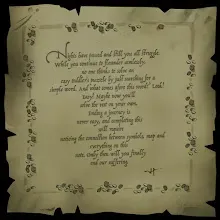 Nights have passed and still you all struggle.
While you continue to flounder aimlessly,
no one thinks to solve an
easy riddler's puzzle by just searching for a
simple word. And what comes after this word? Look!
Easy! Maybe now you'll
solve the rest on your own,
ending a journey is
never easy, and completing this
will require
noticing the connection between symbols, map and
everything on this
note, truly then will you finally
end our suffering.